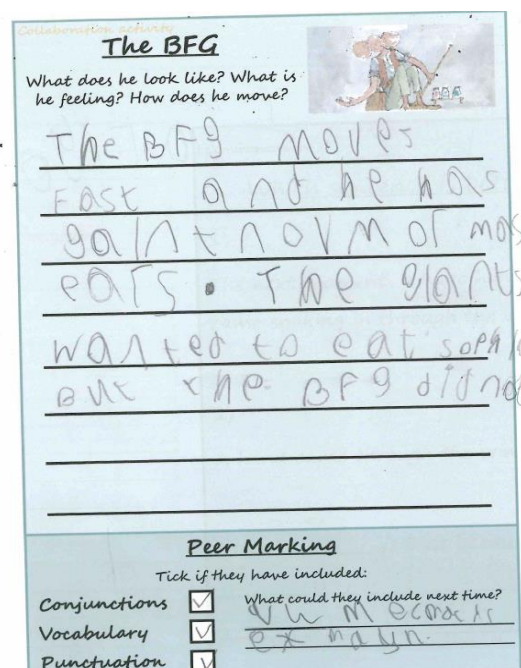 Collaboration activity
The BFG
What does he look like? What is
he feeling? How does he move?
The BFg moves
Fast and he has
gaint novmormos
ears. The giants
wanted to eat soph
But the BFg did not
Peer Marking
Tick if they have included:
Conjunctions
Vocabulary
Punctuation
What could they include next time?